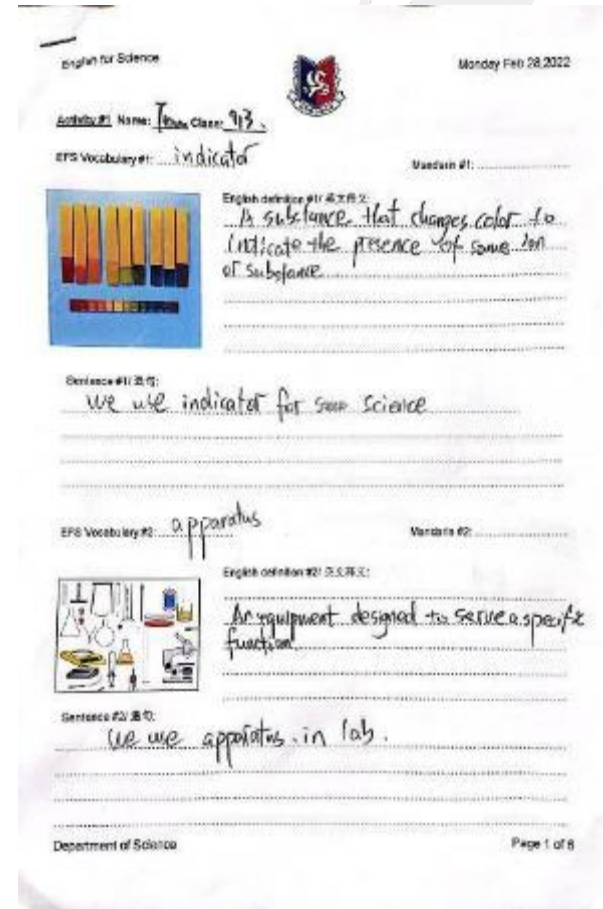 English for Science
Monday Feb 28,2022
Activity #1 Name: Class: 913.
EFS Vocabulary #1: indicator
Mandarin #1:
English definition #1/ 英文释义:
A substance that changes color to
indicate the presence of some ion
or substance
Sentence #1/ 造句:
We use indicator for science
EFS Vocabulary #2: apparatus
Mandarin #2:
English definition #2/ 英文释义:
An equipment designed to serve a specific
function.
Sentence #2/ 造句:
We use apparatus in lab.
Department of Science
Page 1 of 6